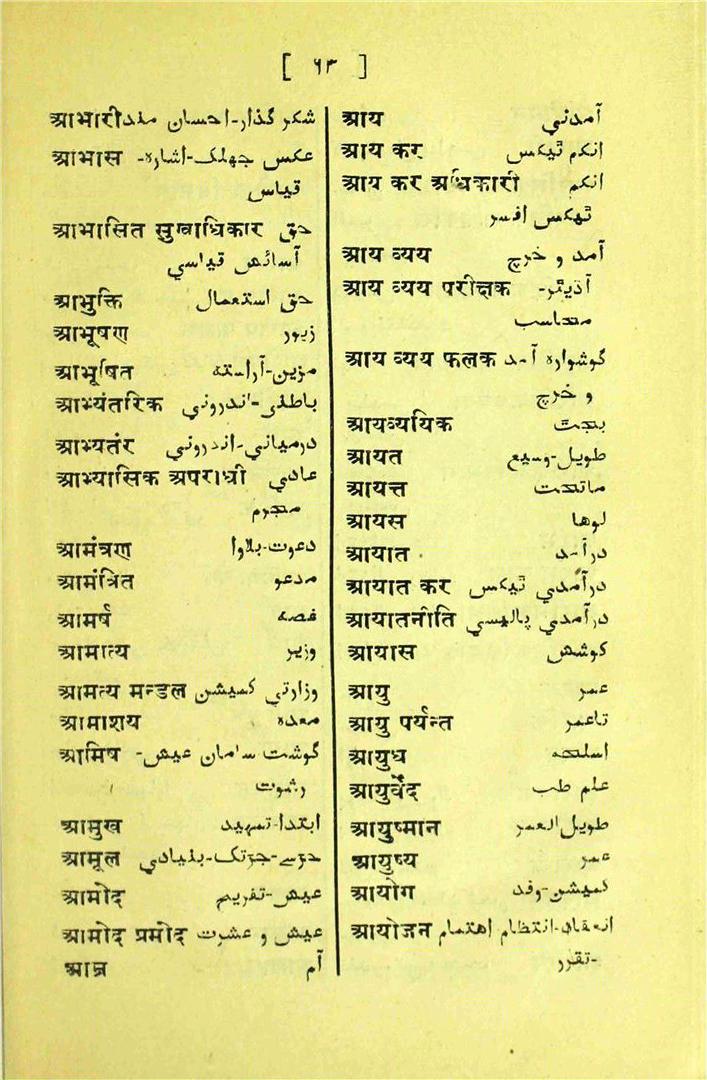 [ ٦٣ ]
आभारी شکر گذار-احسان مند
आभास عکس جھلک-اشارہ-
قیاس
आभासित सुखाधिकार حق
آسائش قیاسي
आभुक्ति حق استعمال
आभूषण زیور
आभूषित مزین-آراستہ
आभ्यंतरिक باطنی-اندروني
आभ्यतंर درمیاني-اندروني
आभ्यासिक अपराधी عادي
مجرم
आमंत्रण دعوت-بلاوا
आमंत्रित مدعو
आमर्ष غصہ
आमात्य وزیر
आमत्य मन्डल وزارتي کمیشن
आमाशय معدہ
आमिष گوشت سامان عیش-
رشوت
आमुख ابتدا-تمہید
आमूल جڑسے-جڑتک-بنیادي
आमोद عیش-تفریح
आमोद प्रमोद عیش و عشرت
आम्र آم
आय آمدني
आय कर انکم ٹیکس
आय कर अधिकारी انکم
ٹیکس افسر
आय व्यय آمد و خرچ
आय व्यय परीक्षक آڈیٹر-
محاسب
आय व्यय फलक گوشوارہ آمد
و خرچ
आयव्ययिक بجٹ
आयत طویل-وسیع
आयत्त ماتحت
आयस لوھا
आयात درآمد
आयात कर درآمدي ٹیکس
आयातनीति درآمدي پالیسي
आयास کوشش
आयु عمر
आयु पर्यन्त تاعمر
आयुध اسلحہ
आयुर्वेद علم طب
आयुष्मान طویل العمر
आयुष्य عمر
आयोग کمیشن-وفد
आयोजन انعقاد-انتظام اھتمام
-تقرر